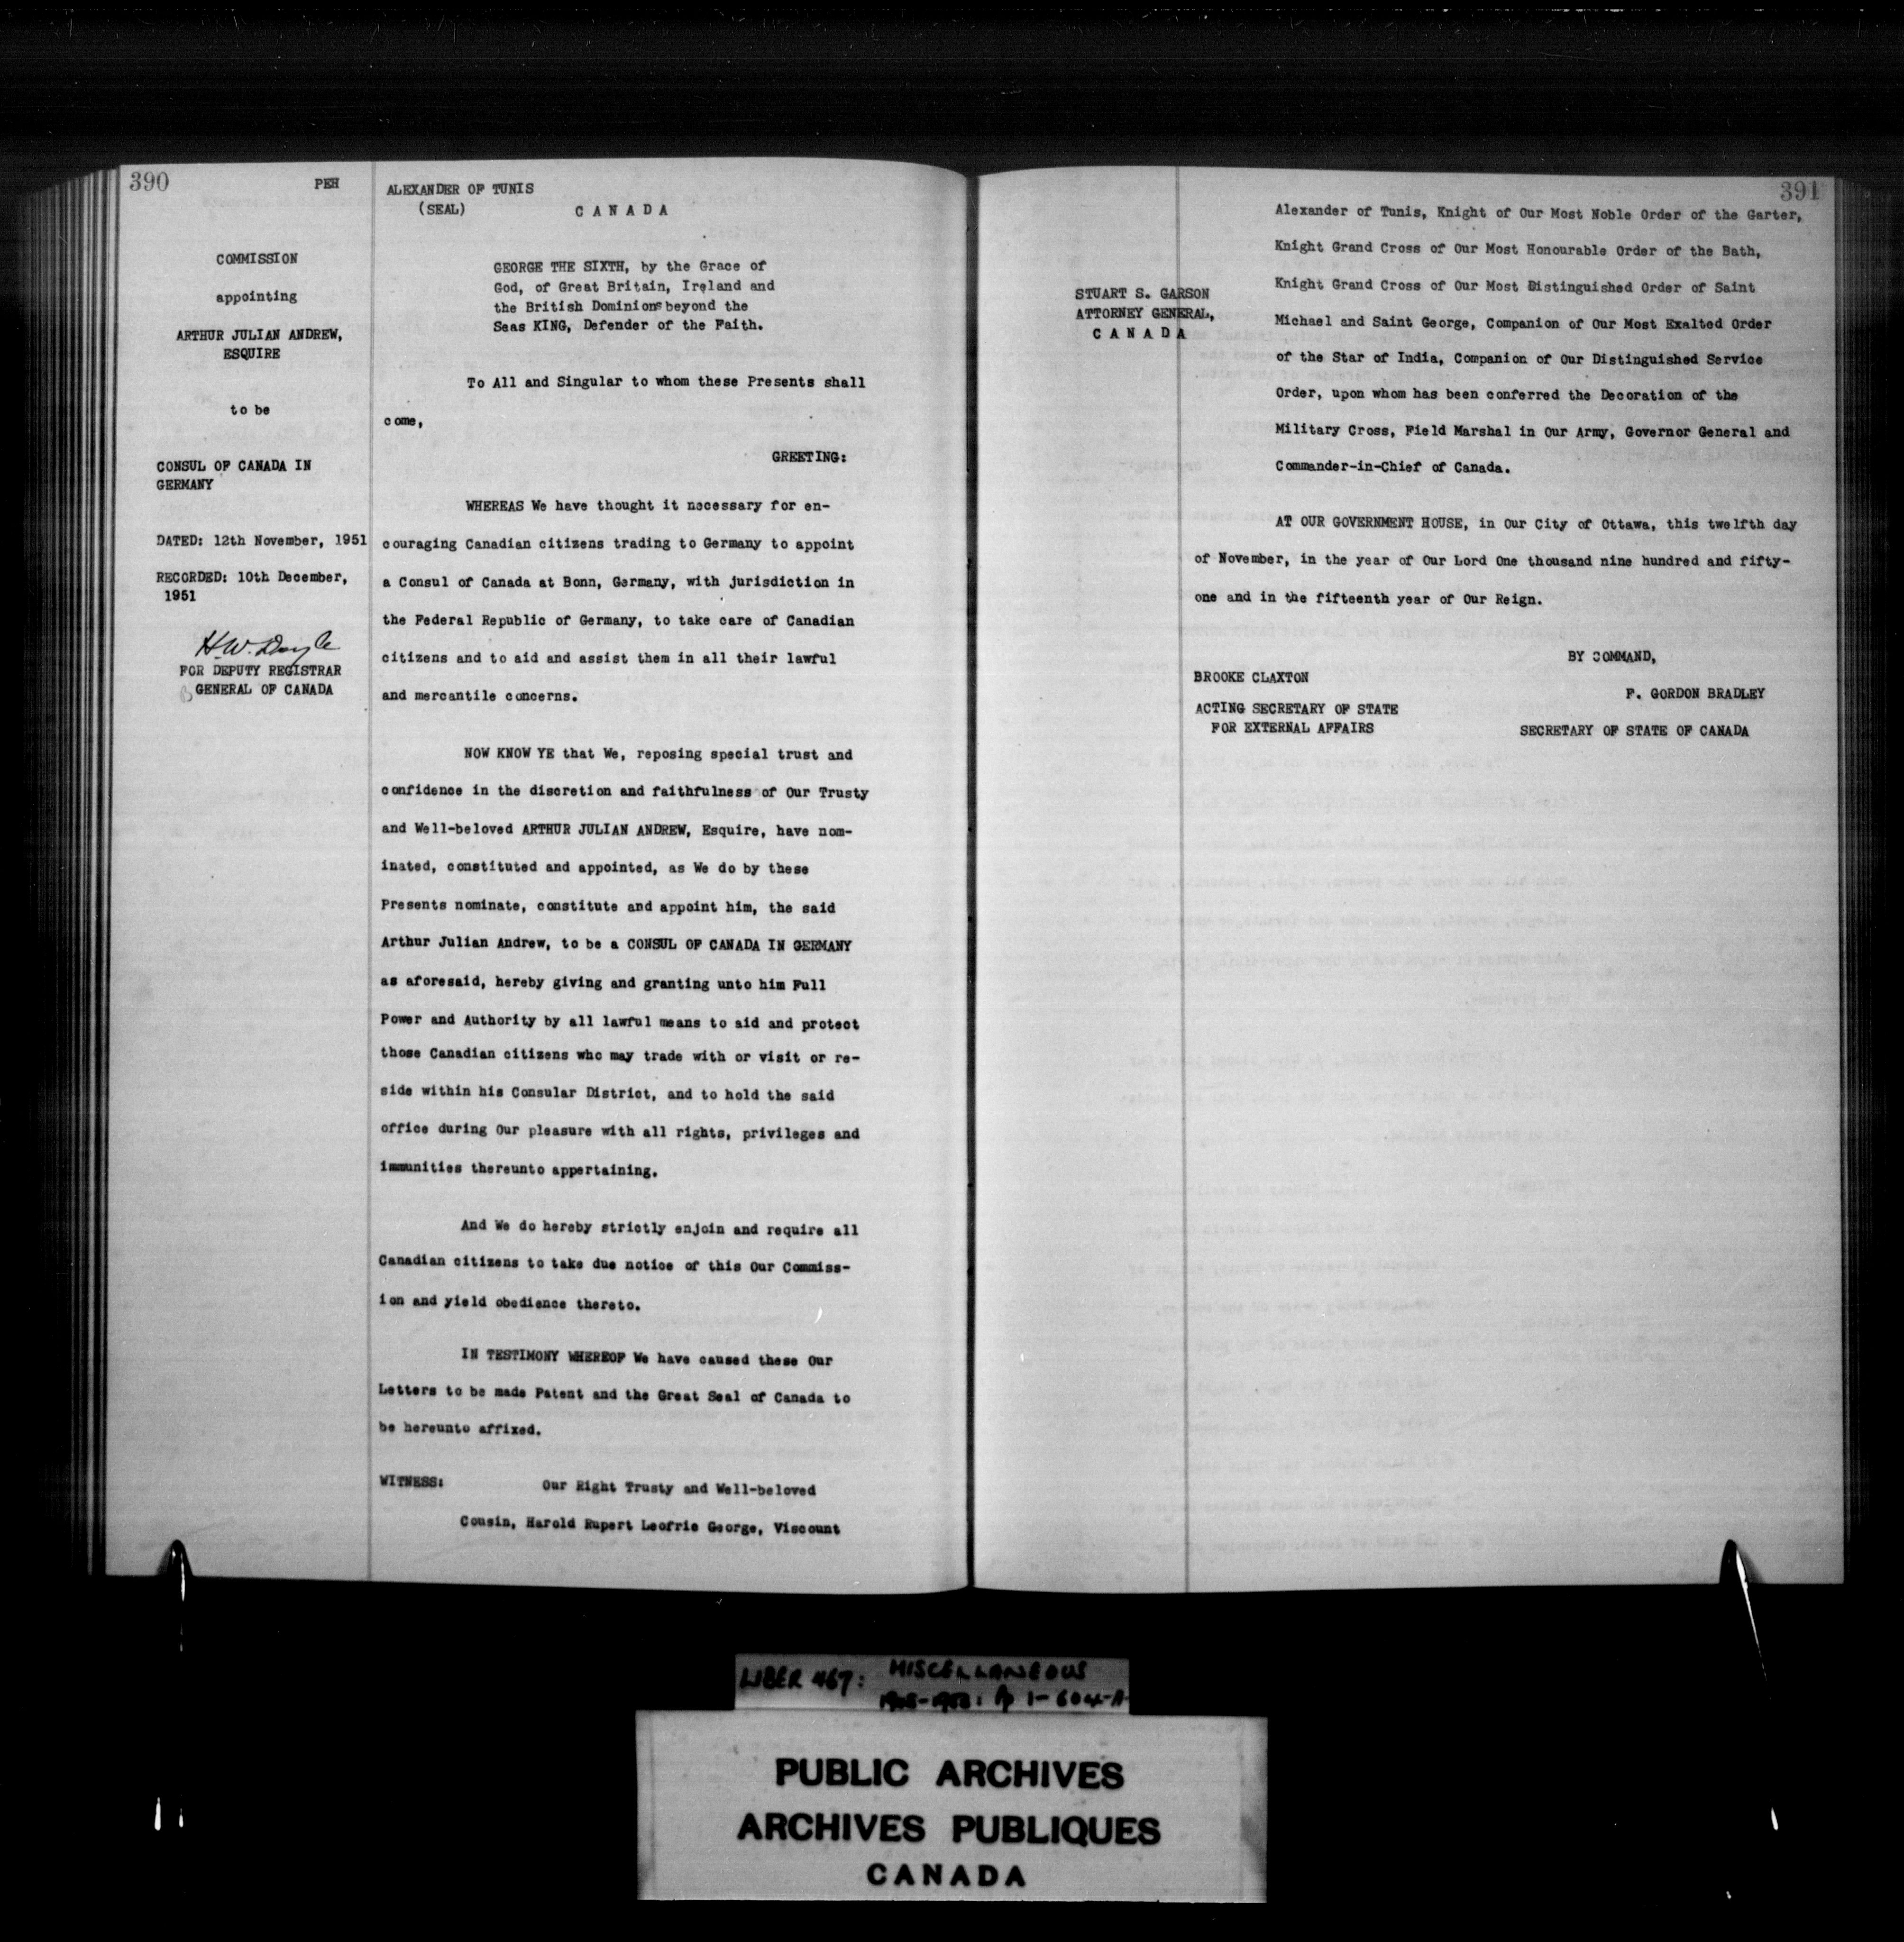 390
PEH
COMMISSION
appointing
ARTHUR JULIAN ANDREW,
ESQUIRE
to be
CONSUL OF CANADA IN
GERMANY
DATED: 12th November, 1951
RECORDED: 10th December,
1951
H.W. Doyle
FOR DEPUTY REGISTRAR
GENERAL OF CANADA
ALEXANDER OF TUNIS
(SEAL)
CANADA
GEORGE THE SIXTH, by the Grace of
God, of Great Britain, Ireland and
the British Dominions beyond the
Seas KING, Defender of the Faith.
To All and Singular to whom these Presents shall
come,
GREETING:
WHEREAS We have thought it necessary for en-
couraging Canadian citizens trading to Germany to appoint
a Consul of Canada at Bonn, Germany, with jurisdiction in
the Federal Republic of Germany, to take care of Canadian
citizens and to aid and assist them in all their lawful
and mercantile concerns.
NOW KNOW YE that We, reposing special trust and
confidence in the discretion and faithfulness of Our Trusty
and Well-beloved ARTHUR JULIAN ANDREW, Esquire, have nom-
inated, constituted and appointed, as We do by these
Presents nominate, constitute and appoint him, the said
Arthur Julian Andrew, to be a CONSUL OF CANADA IN GERMANY
as aforesaid, hereby giving and granting unto him Full
Power and Authority by all lawful means to aid and protect
those Canadian citizens who may trade with or visit or re-
side within his Consular District, and to hold the said
office during Our pleasure with all rights, privileges and
immunities thereunto appertaining.
And We do hereby strictly enjoin and require all
Canadian citizens to take due notice of this Our Commiss-
ion and yield obedience thereto.
IN TESTIMONY WHEREOF We have caused these Our
Letters to be made Patent and the Great Seal of Canada to
be hereunto affixed.
WITNESS: Our Right Trusty and Well-beloved
Cousin, Harold Rupert Leofric George, Viscount
391
Alexander of Tunis, Knight of Our Most Noble Order of the Garter,
Knight Grand Cross of Our Most Honourable Order of the Bath,
Knight Grand Cross of Our Most Distinguished Order of Saint
Michael and Saint George, Companion of Our Most Exalted Order
of the Star of India, Companion of Our Distinguished Service
Order, upon whom has been conferred the Decoration of the
Military Cross, Field Marshal in Our Army, Governor General and
Commander-in-Chief of Canada.
STUART S. GARSON
ATTORNEY GENERAL,
CANADA
AT OUR GOVERNMENT HOUSE, in Our City of Ottawa, this twelfth day
of November, in the year of Our Lord One thousand nine hundred and fifty-
one and in the fifteenth year of Our Reign.
BY COMMAND,
BROOKE CLAXTON
F. GORDON BRADLEY
ACTING SECRETARY OF STATE
FOR EXTERNAL AFFAIRS
SECRETARY OF STATE OF CANADA
LIBER 467: MISCELLANEOUS
1-604-A
PUBLIC ARCHIVES
ARCHIVES PUBLIQUES
CANADA